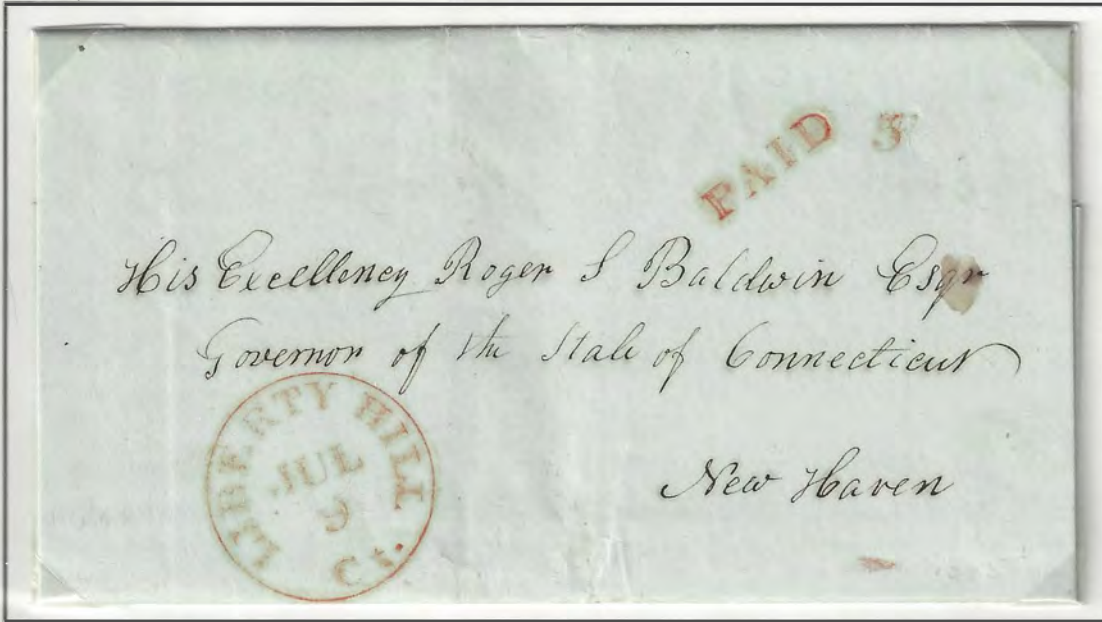 PAID 5
His Excellency Roger S Baldwin Esqr
Governor of the State of Connecticut
New Haven
LIBERTY HILL
JUL
9
Ct.